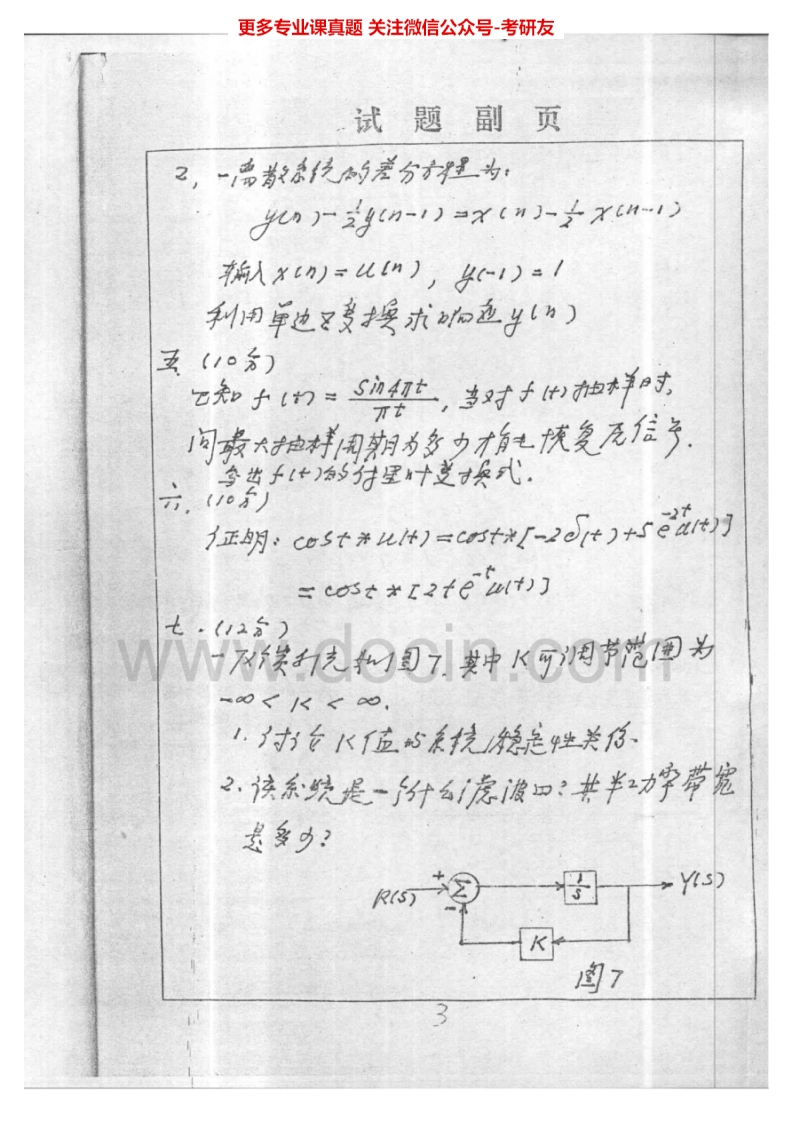 更多专业课真题 关注微信公众号-考研友
试题副页
2, 一离散系统的差分方程为:
y(n)-½y(n-1)=x(n)-½x(n-1)
输入x(n)=u(n), y(-1)=1
利用单边Z变换求响应y(n)
五、(10分)
已知f(t)=sin4πt/πt, 当对f(t)抽样时,
问最大抽样周期为多少才能恢复原信号.
写出f(t)的付里叶变换式.
六. (10分)
证明: cost*u(t)=cost*[-2δ(t)+5e^{-2t}u(t)]
=cost*[2te^{-t}u(t)]
七.(12分)
www.docin.com
一反馈系统如图7,其中K可调节范围为
-∞<K<∞.
1.讨论K值的系统稳定性关系.
2.该系统是一个什么滤波口?其半功率带宽
是多少?
R(S) + Σ 1/S Y(S)
-
K
图7
3